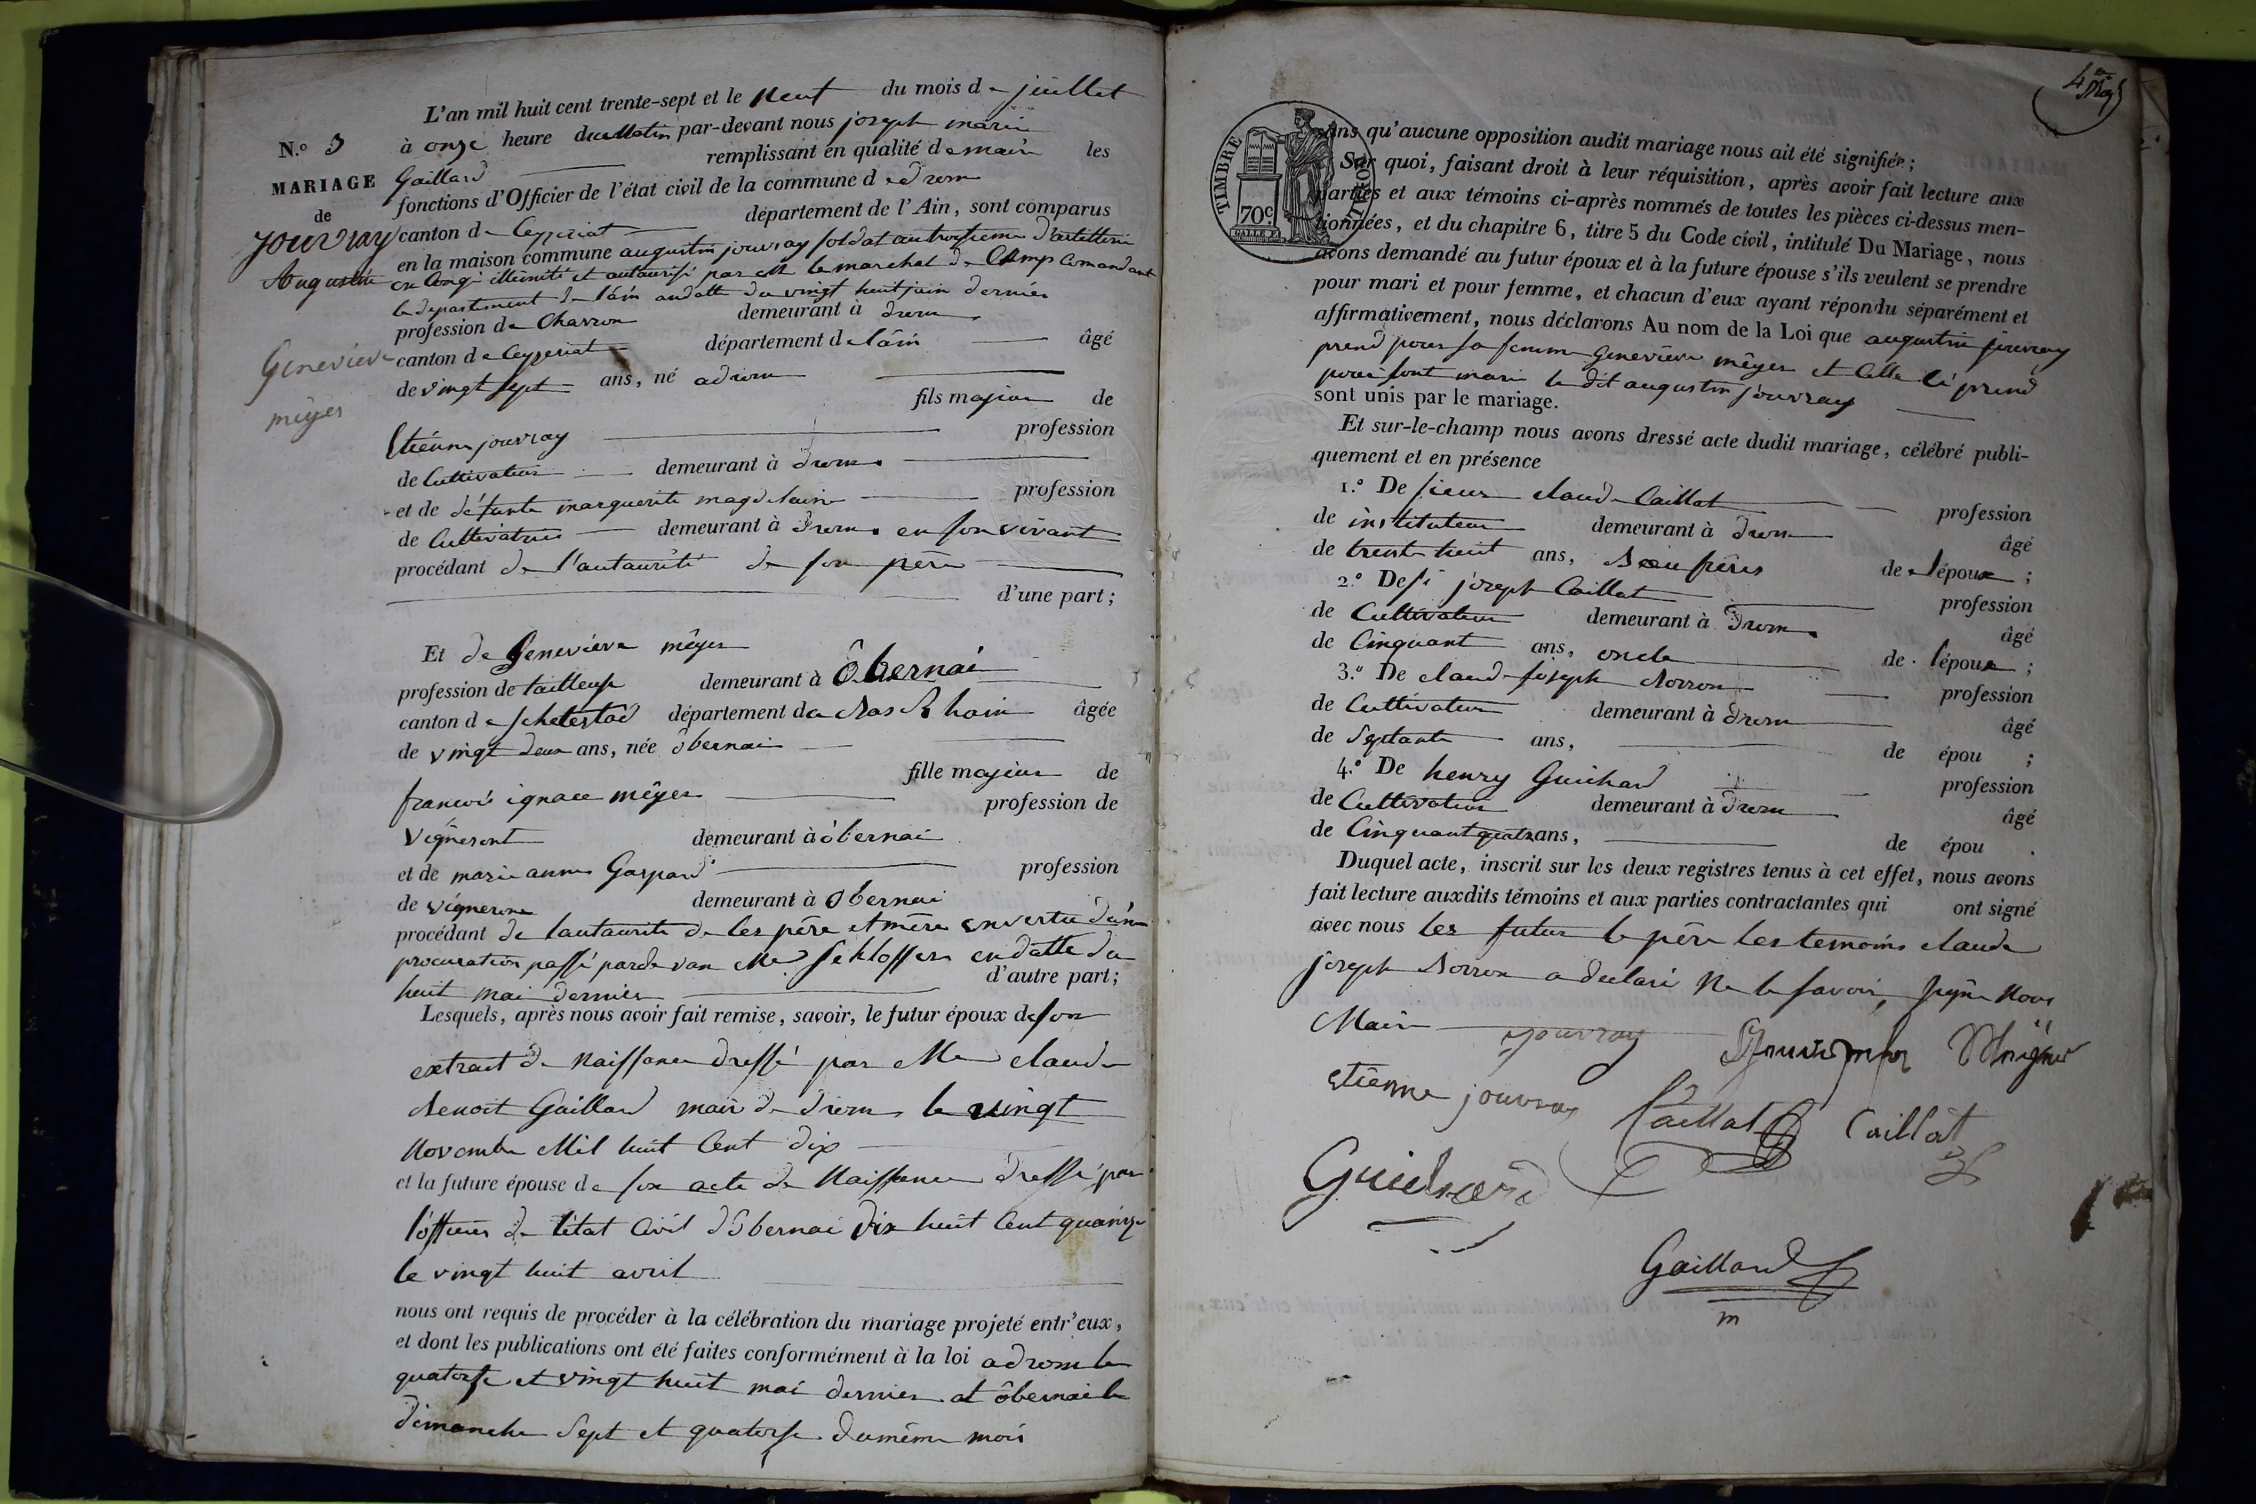 L'an mil huit cent trente-sept et le neuf du mois de juillet
N.o 3
à onze heure du Matin par-devant nous joseph marie
MARIAGE
Gaillard remplissant en qualité de maire les
fonctions d'Officier de l'état civil de la commune de drom
de
jouvray
Augustin
canton de Ceyzeriat département de l'Ain, sont comparus
en la maison commune augustin jouvray soldat au troisieme d'artellerie
en Congé illimité et autaurisé par Mr le marchal de Camp Comandant
le departement de l'ain en datte du vingt huit juin dernier
profession de Charron demeurant à drom
Genevieve
mêyer
canton de Ceyzeriat département de lâin âgé
de vingt sept ans, né a drom
fils majeur de
Etienne jouvray profession
de Cultivateur demeurant à drom
et de défunte marguerite magdelaine profession
de Cultivatrice demeurant à drom en son vivant
procédant de l'autaurité de son père
d'une part;
Et de Genevieve mêyer
profession de tailleuse demeurant à ôbernai
canton de schelestad département du Bas Rhain âgée
de vingt deux ans, née ôbernai
fille majeur de
francois ignace mêyer profession de
vigneront demeurant à ôbernai
et de marie anne Gaspard profession
de vigneronne demeurant à Obernai
procédant de lautaurité de ses père et mère en vertu d'une
procuration passé pardevan Me Schlosser en datte du
huit mai dernier d'autre part;
Lesquels, après nous avoir fait remise, savoir, le futur époux de son
extrait de Naissance dressé par Me claude
Benoit Gaillard maire de drom le vingt
Novembre Mil huit Cent dix
et la future épouse de son acte de Naissance dressé par
l'officier de l'état Civil d'Obernai dix huit Cent quainze
le vingt huit avril
nous ont requis de procéder à la célébration du mariage projeté entr'eux,
et dont les publications ont été faites conformément à la loi a drom le
quatorse et vingt huit mai dernier et ôbernai le
dimanche Sept et quatorse du même mois
4me
TIMBRE
ROYAL
70c.
sans qu'aucune opposition audit mariage nous ait été signifiée;
Sur quoi, faisant droit à leur réquisition, après avoir fait lecture aux
parties et aux témoins ci-après nommés de toutes les pièces ci-dessus men-
tionnées, et du chapitre 6, titre 5 du Code civil, intitulé Du Mariage, nous
avons demandé au futur époux et à la future épouse s'ils veulent se prendre
pour mari et pour femme, et chacun d'eux ayant répondu séparément et
affirmativement, nous déclarons Au nom de la Loi que augustin jouvray
prend pour sa femme Geneviève mêyer et Celle Ci prend
pour sont mari le dit augustin jouvray
sont unis par le mariage.
Et sur-le-champ nous avons dressé acte dudit mariage, célébré publi-
quement et en présence
1.o De sieur claude Caillat profession
de instituteur demeurant à drom âgé
de trente huit ans, Beau frères de lépoux;
2.o De si joseph Caillat profession
de Cultivateur demeurant à drom âgé
de Cinquant ans, oncle de lépoux;
3.o De claude joseph Borron profession
de Cultivateur demeurant à drom âgé
de Septante ans, de épou;
4.o De henry Guichard profession
de Cultivateur demeurant à drom âgé
de Cinquant quatre ans, de épou.
Duquel acte, inscrit sur les deux registres tenus à cet effet, nous avons
fait lecture auxdits témoins et aux parties contractantes qui ont signé
avec nous les futur le père les temoins claude
joseph Borron a declaré Ne le savoir, signe Nous
Maire
jouvray
etienne jouvray Caillat Caillat
Guichard
Gaillard
m